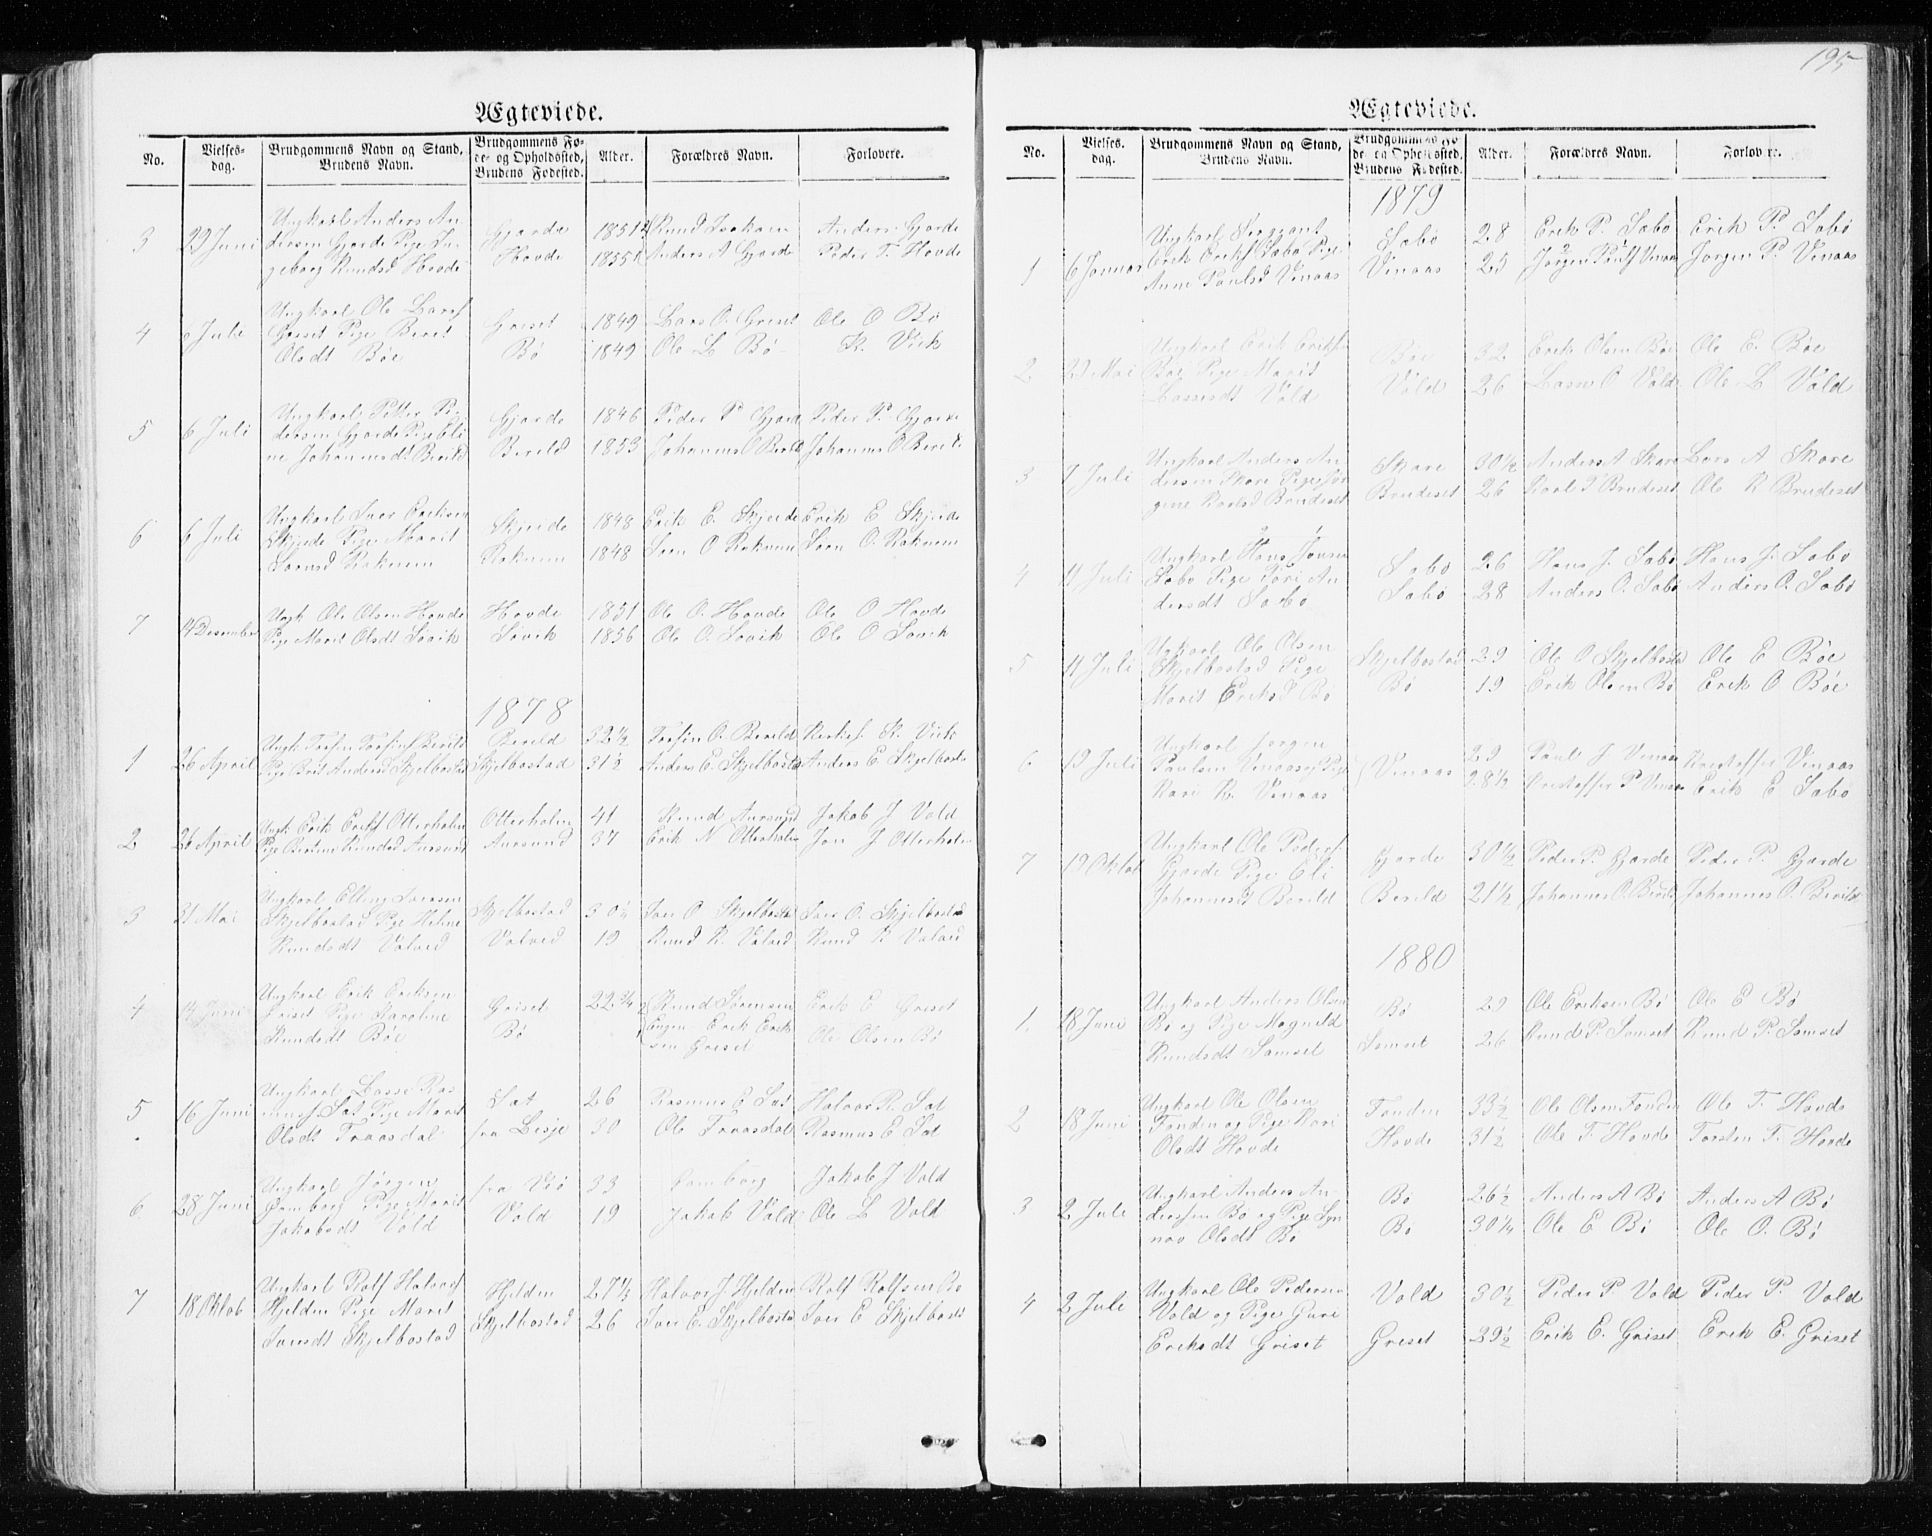 195
Ægteviede.
No.
Vielses-
dag.
Brudgommens Navn og Stand,
Brudens Navn.
Brudgommens Fø-
de- og Opholdssted,
Brudens Fødested.
Alder.
Forældres Navn.
Forlovere.
3
29 Juni
Ungkarl Anders An-
dersen Gjørde Pige In-
geborg Knudsd Hovde
Gjørde
Hovde
Anders A Gjørde
Anders Gjørde
Peder T. Hovde
4
6 Juli
Ungkarl Ole Larsf
Griset Pige Berit
Olsdt Bøe
Griset
Bø
1849
1849
Lars O. Griset
Ole L Bø
Ole O Bø
K. Vick
5
6 Juli
Ungkarl Petter Pe-
dersen Gjørde Pige Eli-
ne Johannesdt Berild
Gjørde
Berild
1846
1853
Peder P Gjørd
Johannes O Berild
Peder P. Gjørde
Johannes O Berild
6
6 Juli
Ungkarl Iver Eriksen
Skjerde Pige Marit
Sørensd Raknem
Skjerde
Raknem
1848
1848
Erik E. Skjerde
Søen O Raknem
Erik E Skjerde
Søen O. Raknem
7
14 Desember
Ungk Ole Olsen Hovde
Pige Marit Olsdt Søvik
Hovde
Søvik
1851
1856
Ole O. Hovde
Ole O. Søvik
Ole O Hovde
Ole O Søvik
1878
1
26 April
Ungk: Torfin Torfinsf Berild
Pige Brit Andersd Skjelbostad
Berild
Skjelbostad
32½
31½
Torfin O. Berild
Anders E. Skjelbosta
K. Vick
Anders E. Skjelbosta
2
26 April
Ungk: Erik Eriksf Otterholm
Pige Bertine Knudsd Aursund
Otterholm
Aursund
41
37
Knud Aursund
Erik N Otterholm
Jakob J Vold
Jon J Otterholm
3
31 Mai
Ungkarl Elling Iversen
Skjelbostad Pige Heline
Knudsdt Valved
Skjelbostad
Valved
30½
19
Iver O Skjelbosta
Knud K. Valved
Iver O. Skjelbostad
Knud K Valved
4
14 Juni
Ungkarl Erik Eriksen
Griset Pige Karoline
Knudsdt Bøe
Griset
Bø
22¾
Knud Sørensen
Engen Erik Erik-
sen Griset
Erik E Griset
Ole Olsen Bø
5
16 Juni
Ungkarl Lasse Ras-
musf Sæt Pige Marit
Olsdt Traasdal
Sæt
fra Lesje
26
30
Rasmus E Sæt
Ole Traasdal
Halvor R. Sæt
Rasmus E Sæt
6
28 Juni
Ungkarl Jørgen
Gomborg Pige Marit
Jakobsdt Vold
fra Veø
Vold
33
19
Gomborg
Jakob Vold
Jakob J Vold
Ole L Vold
7
18 Oktob
Ungkarl Rolf Halvorsf
Hjelden Pige Marit
Iversdt Skjelbostad
Hjelden
Skjelbostad
27½
26
Halvor J Hjelden
Iver E. Skjelbosta
Rolf Rolfsen Bø
Iver E Skjelbosta
Ægteviede.
No.
Vielses-
dag.
Brudgommens Navn og Stand,
Brudens Navn.
Brudgommens Fø-
de- og Opholdssted,
Brudens Fødested.
Alder.
Forældres Navn.
Forlovere.
1879
1
6 Januar
Ungkarl Sergeant
Erik Eriksf Sæbø Pige
Anne Paulsd Venaas
Sæbø
Venaas
28
25
Erik P. Sæbø
Jørgen Paulsf Venaas
Erik P. Sæbø
Jørgen P. Venaas
2
29 Mai
Ungkarl Erik Eriksf
Bøe Pige Marit
Lassesdt Vold
Bøe
Vold
32
26
Erik Olsen Bøe
Lasse O Vold
Ole E. Bøe
Ole L Vold
3
7 Juli
Ungkarl Anders An-
dersen Skare Pige Jør-
gine Karlsd Brudeset
Skare
Brudeset
30½
26
Anders A Skare
Karl P Brudeset
Lars A Skare
Ole K Brudeset
4
11 Juli
Ungkarl Hans Jonsen
Sæbø Pige Kari An-
dersdt Sæbø
Sæbø
Sæbø
26
28
Hans J. Sæbø
Anders O. Sæbø
Hans J. Sæbø
Anders O. Sæbø
5
11 Juli
Ungkarl Ole Olsen
Skjelbostad Pige
Marit Eriksd Bø
Skjelbostad
Bø
29
19
Ole O Skjelbosta
Erik Olsen Bø
Ole E Bøe
Erik O Bøe
6
19 Juli
Ungkarl Jørgen
Paulsen Venaas og Pige
Kari K. Venaas
Venaas
29
28½
Paul J Venaas
Kristoffer P Venaas
Kristoffer Venaas
Erik E Sæbø
7
19 Oktob
Ungkarl Ole Pedersf
Gjørde Pige Eli
Johannesd Berild
Gjørde
Berild
30½
21½
Peder P. Gjørde
Johannes O. Berild
Peder P. Gjørde
Johannes O. Berild
1880
1.
18 Juni
Ungkarl Anders Olsen
Bø og Pige Magnild
Knudsdt Somset
Bø
Somset
29
26
Ole Eriksen Bø
Knud P. Somset
Ole E Bø
Knud P. Somset
2
18 Juni
Ungkarl Ole Olsen
Fonden og Pige Kari
Olsdt Hovde
Fonden
Hovde
33½
31½
Ole Olsen Fonden
Ole T. Hovde
Ole T. Hovde
Torsten T. Hovde
3
2 Juli
Ungkarl Anders An-
dersen Bø og Pige Syn-
nøv Olsdt Bø
Bø
Bø
26½
30¼
Anders A Bø
Ole E Bø
Anders A Bø
Ole O. Bø
4
2 Juli
Ungkarl Ole Pedersen
Vold og Pige Guri
Eriksdt Griset
Vold
Griset
30½
29½
Peder P. Vold
Erik E. Griset
Peder P. Vold
Erik E. Griset